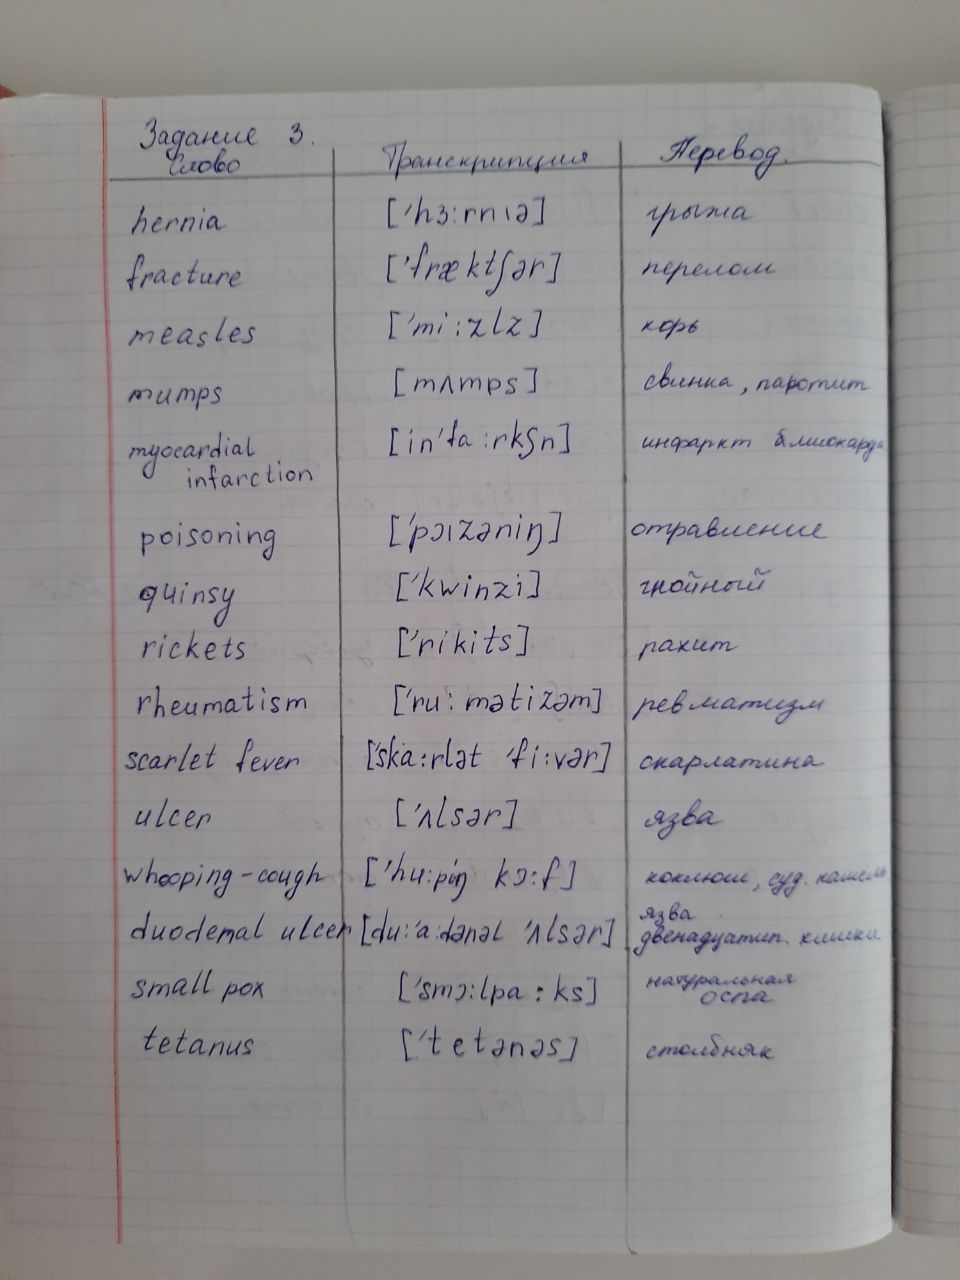 Задание 3.
Слово Транскрипция Перевод.
hernia ['hɜ:rnıə] грыжа
fracture ['fræktʃər] перелом
measles ['mi:zlz] корь
mumps [mʌmps] свинка, паротит
myocardial [in'fa:rkʃn] инфаркт миокарда
infarction
poisoning ['pɔızəniŋ] отравление
quinsy ['kwinzi] гнойный
rickets ['rikits] рахит
rheumatism ['ru:mətizəm] ревматизм
scarlet fever ['ska:rlət 'fi:vər] скарлатина
ulcer ['ʌlsər] язва
whooping-cough ['hu:piŋ kɔ:f] коклюш, суд. кашель
язва
duodemal ulcer [du:'a:dənəl 'ʌlsər] двенадцатип. кишки
small pox ['smɔ:lpa:ks] натуральная
оспа
tetanus ['tetənəs] столбняк